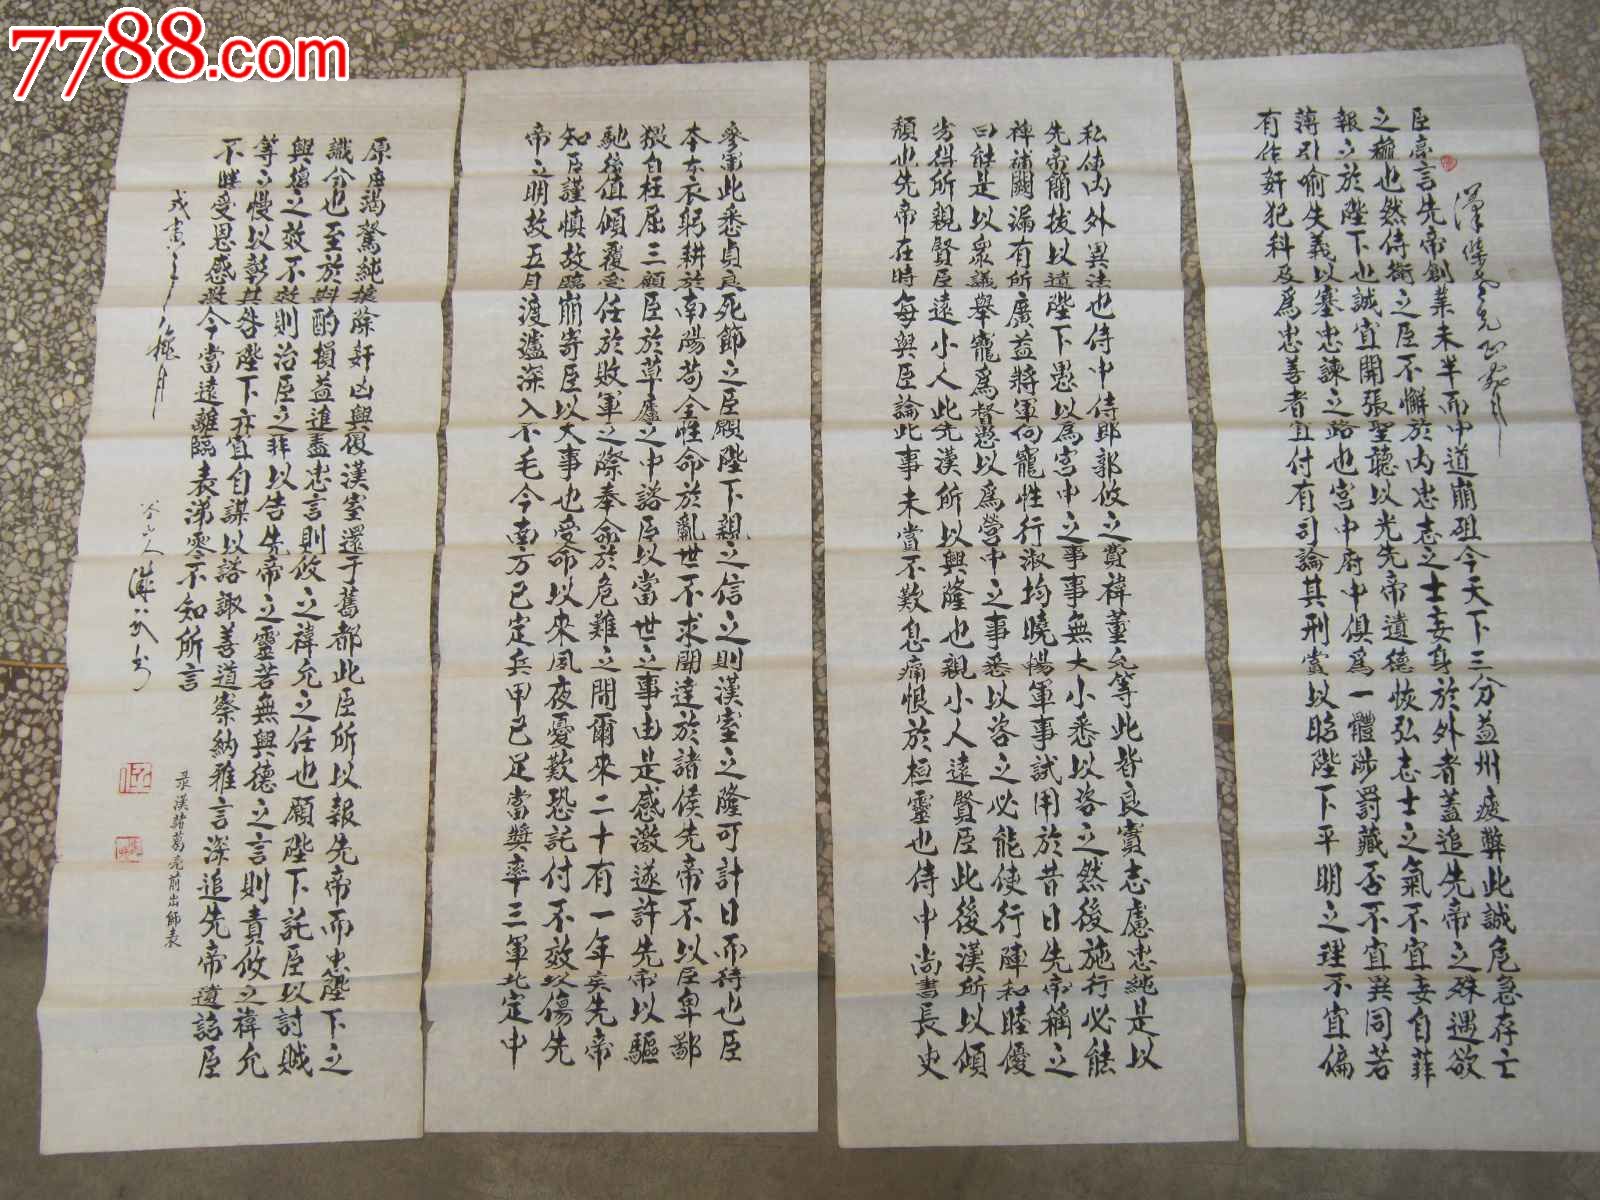 臣亮言先帝創業未半而中道崩殂今天下三分益州疲弊此誠危急存亡
之秋也然侍衛之臣不懈於內忠志之士妄身於外者蓋追先帝之殊遇欲
報之於陛下也誠宜開張聖聽以光先帝遺德恢弘志士之氣不宜妄自菲
薄引喻失義以塞忠諫之路也宮中府中俱爲一體陟罰臧否不宜異同若
有作奸犯科及爲忠善者宜付有司論其刑賞以昭陛下平明之理不宜偏
私使內外異法也侍中侍郎郭攸之費褘董允等此皆良實志慮忠純是以
先帝簡拔以遺陛下愚以爲宮中之事事無大小悉以咨之然後施行必能
裨補闕漏有所廣益將軍向寵性行淑均曉暢軍事試用於昔日先帝稱之
曰能是以眾議舉寵爲督愚以爲營中之事悉以咨之必能使行陣和睦優
劣得所親賢臣遠小人此先漢所以興隆也親小人遠賢臣此後漢所以傾
頹也先帝在時每與臣論此事未嘗不歎息痛恨於桓靈也侍中尚書長史
參軍此悉貞良死節之臣願陛下親之信之則漢室之隆可計日而待也臣
本布衣躬耕於南陽苟全性命於亂世不求聞達於諸侯先帝不以臣卑鄙
猥自枉屈三顧臣於草廬之中諮臣以當世之事由是感激遂許先帝以驅
馳後值傾覆受任於敗軍之際奉命於危難之間爾來二十有一年矣先帝
知臣謹慎故臨崩寄臣以大事也受命以來夙夜憂歎恐託付不效以傷先
帝之明故五月渡瀘深入不毛今南方已定兵甲已足當獎率三軍北定中
原庶竭駑純攘除奸凶興復漢室還于舊都此臣所以報先帝而忠陛下之
職分也至於斟酌損益進盡忠言則攸之褘允之任也願陛下託臣以討賊
興復之效不效則治臣之罪以告先帝之靈若無興德之言則責攸之褘允
等之慢以彰其咎陛下亦宜自謀以諮諏善道察納雅言深追先帝遺詔臣
不勝受恩感激今當遠離臨表涕零不知所言
录漢諸葛亮前出師表
7788.com